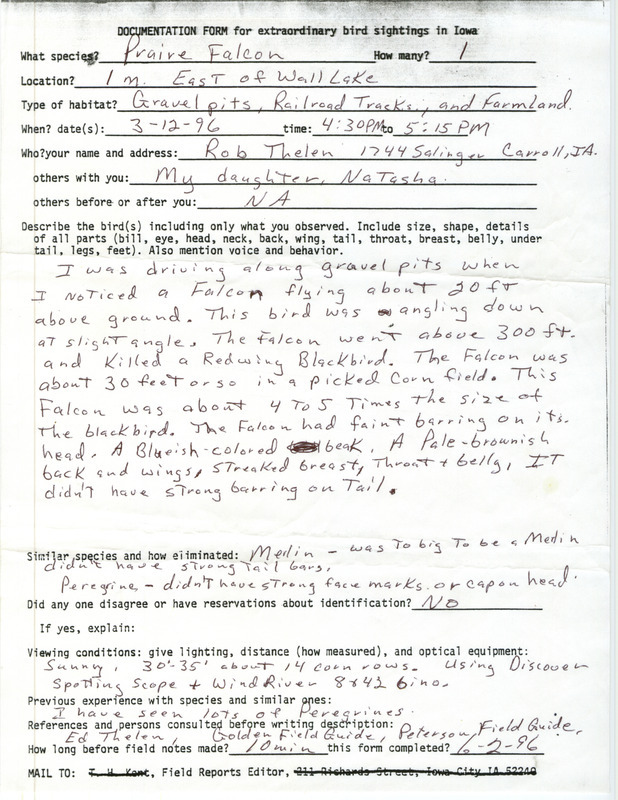 DOCUMENTATION FORM for extraordinary bird sightings in Iowa
What species? Praire Falcon How many? 1
Location? 1 m. East of Wall Lake
Type of habitat? Gravel pits, Railroad Tracks, and Farmland.
When? date(s): 3-12-96 time: 4:30PM to 5:15 PM
Who?your name and address: Rob Thelen 1744 Salinger Carroll, IA.
others with you: My daughter, Natasha.
others before or after you: NA
Describe the bird(s) including only what you observed. Include size, shape, details
of all parts (bill, eye, head, neck, back, wing, tail, throat, breast, belly, under
tail, legs, feet). Also mention voice and behavior.
I was driving along gravel pits when
I noticed a Falcon flying about 20 ft
above ground. This bird was angling down
at slight angle. The falcon went above 300 ft.
and killed a Redwing Blackbird. The Falcon was
about 30 feet or so in a picked corn field. This
Falcon was about 4 to 5 Times the size of
the blackbird. The Falcon had faint barring on its.
head. A Blueish-colored beak, A Pale-brownish
back and wings, streaked breast, Throat + belly, IT
didn't have strong barring on Tail.
Similar species and how eliminated: Merlin - was To big To be a Merlin
didn't have strong Tail bars.
Peregrine - didn't have strong face marks. or cap on head.
Did any one disagree or have reservations about identification? NO
If yes, explain:
Viewing conditions: give lighting, distance (how measured), and optical equipment:
Sunny, 30'-35' about 14 corn rows. Using Discover
Spotting Scope + Wind River 8x42 bino.
Previous experience with species and similar ones:
I have seen lots of Peregrines.
References and persons consulted before writing description:
Ed Thelen, Golden Field Guide, Peterson Field Guide,
How long before field notes made? 10 min this form completed? 6-2-96
MAIL TO: T. H. Kent, Field Reports Editor, 211 Richards Street, Iowa City IA 52240